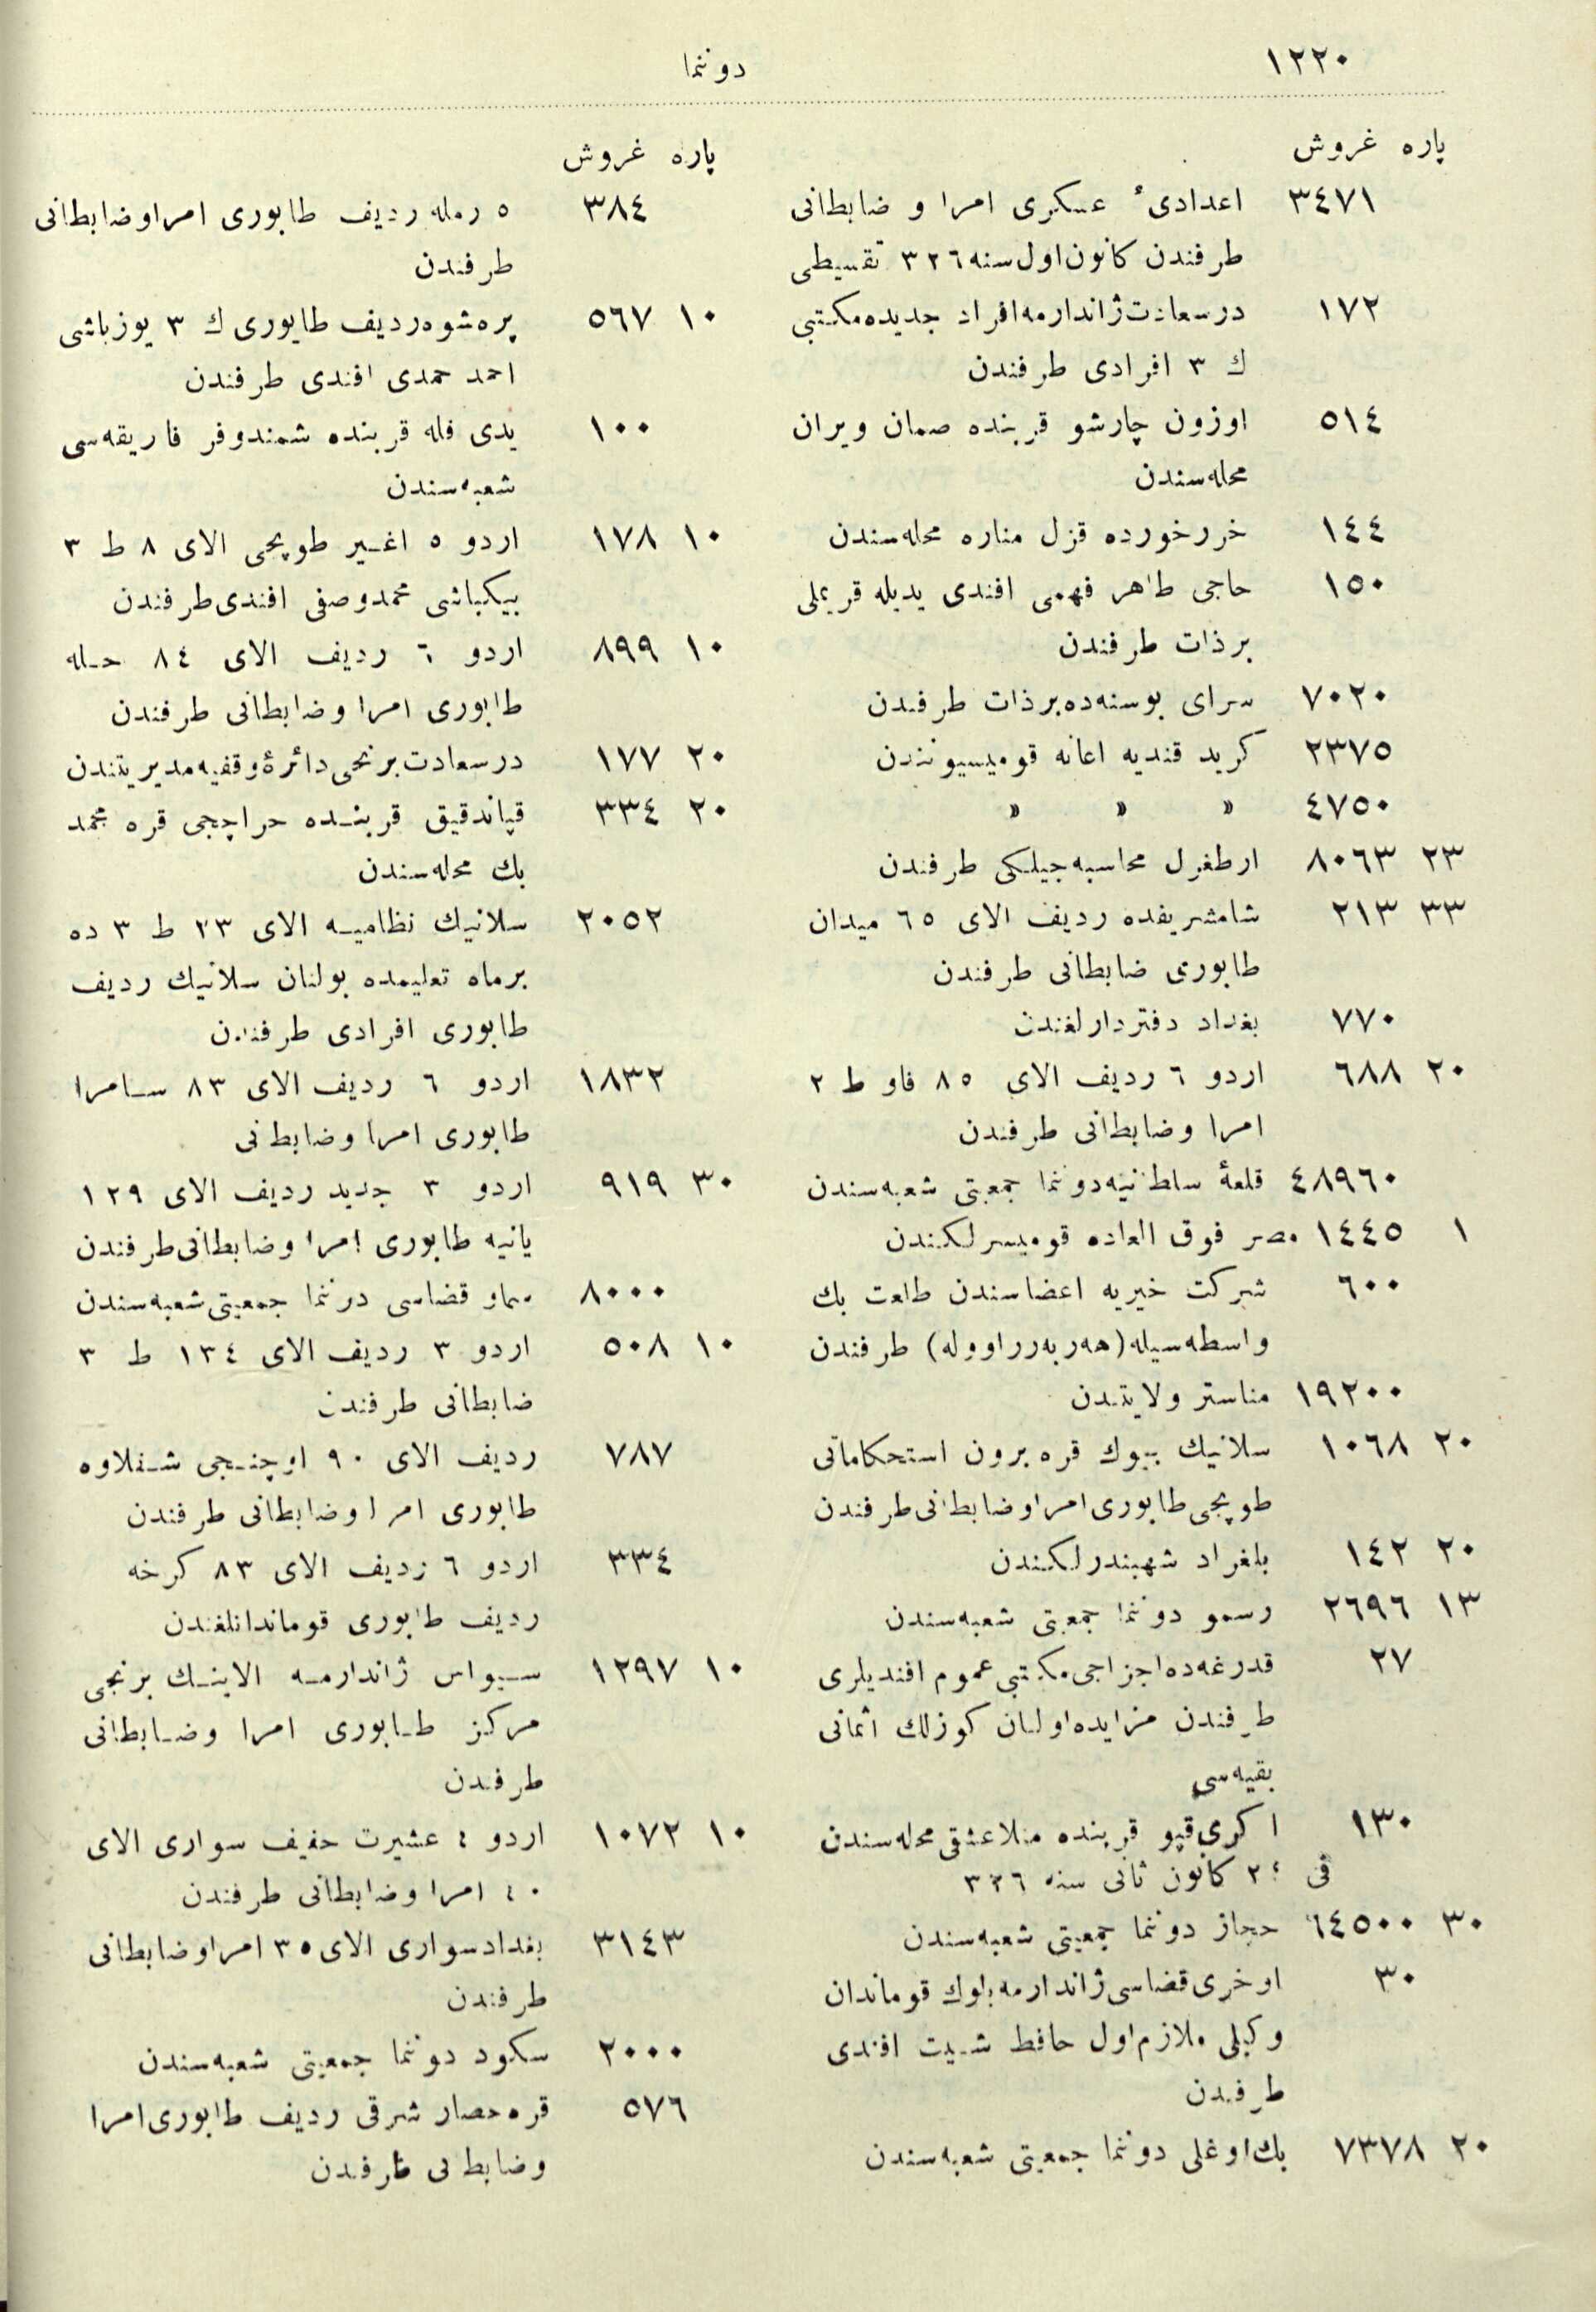 ١٢٢٠
دوننما
پاره غروش
٣٤٧١ اعدادیٔ عسکری امرا و ضابطانی
طرفندن کانون‌اول سنه ٣٢٦ تقسیطی
١٧٢ درسعادت ژاندارمه افراد جدیده مکتبی
ك ٣ افرادی طرفندن
٥١٤ اوزون چارشو قربنده صمان ویران
محله‌سندن
١٤٤ خررخورده قزل مناره محله‌سندن
١٥٠ حاجی طاهر فهمی افندی یدیله قریملی
برذات طرفندن
٧٠٢٠ سرای بوسنه‌ده برذات طرفندن
٢٣٧٥ کرید قندیه اعانه قومیسیونندن
٤٧٥٠ » » »
٢٣ ٨٠٦٣ ارطغرل محاسبه‌جیلکی طرفندن
٣٣ ٢١٣ شامشریفده ردیف الای ٦٥ میدان
طابوری ضابطانی طرفندن
٧٧٠ بغداد دفتردارلغندن
٢٠ ٦٨٨ اردو ٦ ردیف الای ٨٥ فاو ط ٢
امرا وضابطانی طرفندن
٤٨٩٦٠ قلعهٔ سلطانیه دوننما جمعیتی شعبه‌سندن
١ ١٤٤٥ مصر فوق العاده قومیسرلکندن
٦٠٠ شرکت خیریه اعضاسندن طلعت بك
واسطه‌سیله (هه‌ربه‌رراووله) طرفندن
١٩٢٠٠ مناستر ولایتندن
٢٠ ١٠٦٨ سلانیك بیوك قره برون استحکاماتی
طوپجی طابوری امراوضابطانی طرفندن
٢٠ ١٤٢ بلغراد شهبندرلکندن
١٣ ٢٦٩٦ رسمو دوننما جمعیتی شعبه‌سندن
٢٧ قدرغه‌ده اجزاجی مکتبی عموم افندیلری
طرفندن مزایده اولنان کوزلك اثمانی
بقیه‌سی
١٣٠ اکری قپو قربنده منلاعشقی محله‌سندن
فی ٢٤ کانون ثانی سنه ٣٢٦
٣٠ ٦٤٥٠٠ حجاز دوننما جمعیتی شعبه‌سندن
٣٠ اوخری قضاسی ژاندارمه بلوك قوماندان
وکیلی ملازم اول حافظ شیت افندی
طرفندن
٢٠ ٧٣٧٨ بك‌اوغلی دوننما جمعیتی شعبه‌سندن
پاره غروش
٣٨٤ ٥ رمله ردیف طابوری امراوضابطانی
طرفندن
١٠ ٥٦٧ پره‌شوه ردیف طابوری ك ٣ یوزباشی
احمد حمدی افندی طرفندن
١٠٠ یدی قله قربنده شمندوفر فابریقه‌سی
شعبه‌سندن
١٠ ١٧٨ اردو ٥ اغیر طوپجی الای ٨ ط ٣
بیکباشی محمدوصفی افندی طرفندن
١٠ ٨٩٩ اردو ٦ ردیف الای ٨٤ حله
طابوری امرا وضابطانی طرفندن
٢٠ ١٧٧ درسعادت برنجی دائرهٔ وقفیه مدیریتندن
٢٠ ٣٣٤ قپاندقیق قربنده حراچجی قره محمد
بك محله‌سندن
٢٠٥٢ سلانیك نظامیه الای ٢٣ ط ٣ ده
برماه تعلیمده بولنان سلانیك ردیف
طابوری افرادی طرفندن
١٨٣٢ اردو ٦ ردیف الای ٨٣ سامرا
طابوری امرا وضابطانی
٣٠ ٩١٩ اردو ٣ جدید ردیف الای ١٢٩
یانیه طابوری امرا وضابطانی طرفندن
٨٠٠٠ سماو قضاسی دوننما جمعیتی شعبه‌سندن
١٠ ٥٠٨ اردو ٣ ردیف الای ١٣٤ ط ٣
ضابطانی طرفندن
٧٨٧ ردیف الای ٩٠ اوچنجی شقلاوه
طابوری امرا وضابطانی طرفندن
٣٣٤ اردو ٦ ردیف الای ٨٣ کرخه
ردیف طابوری قوماندانلغندن
١٠ ١٢٩٧ سیواس ژاندارمه الاینك برنجی
مرکز طابوری امرا وضابطانی
طرفندن
١٠ ١٠٧٢ اردو ٤ عشیرت خفیف سواری الای
٤٠ امرا وضابطانی طرفندن
٣١٤٣ بغداد سواری الای ٣٥ امراوضابطانی
طرفندن
٢٠٠٠ سکود دوننما جمعیتی شعبه‌سندن
٥٧٦ قره‌حصار شرقی ردیف طابوری امرا
وضابطانی طرفندن